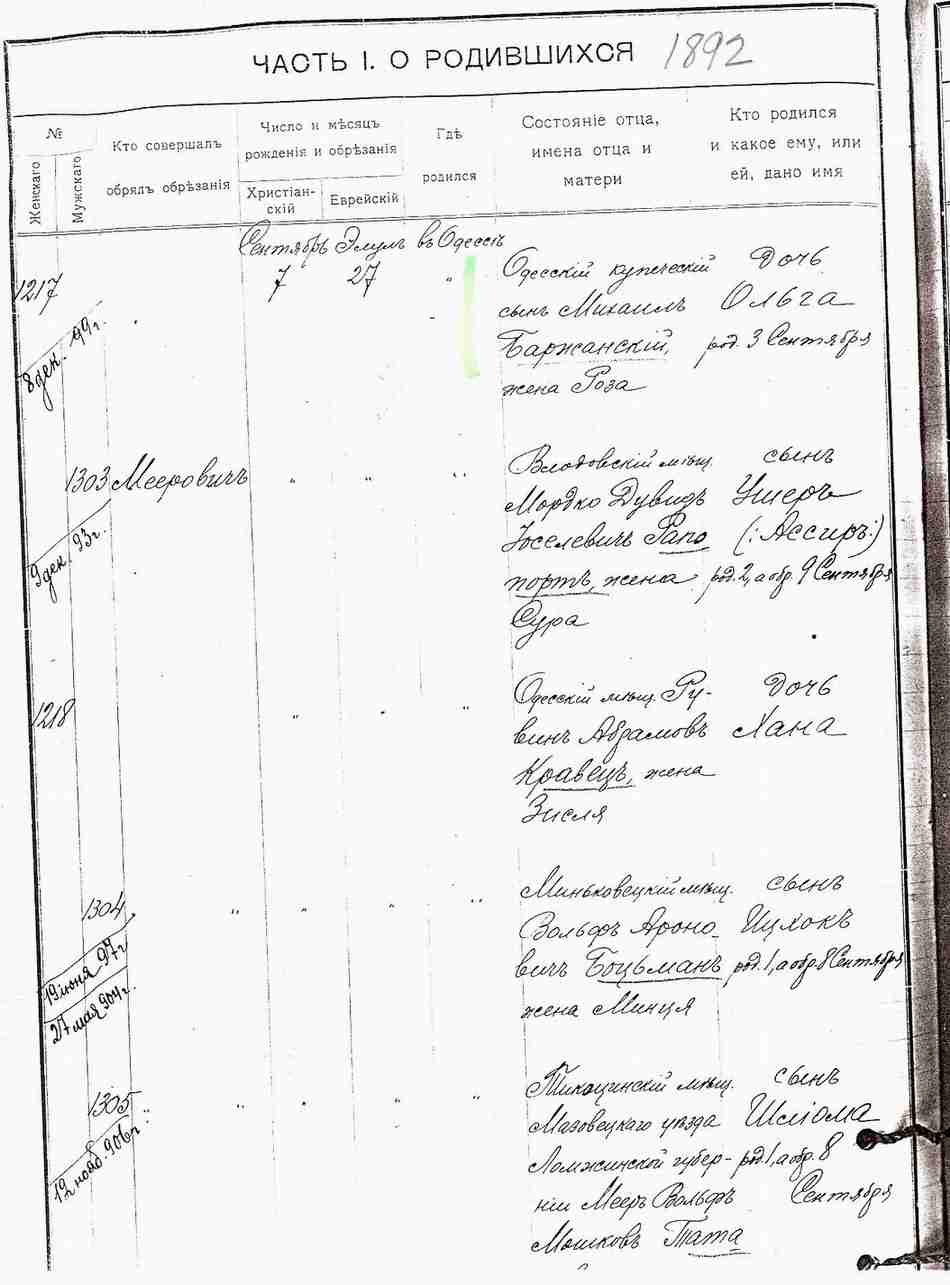 ЧАСТЬ I. О РОДИВШИХСЯ 1892
№
Женскаго
Мужскаго
Кто совершалъ
обрядъ обрѣзанія
Число и мѣсяцъ
рожденія и обрѣзанія
Христіан-
скій
Еврейскій
Гдѣ
родился
Состояніе отца,
имена отца и
матери
Кто родился
и какое ему, или
ей, дано имя
Сентябрь Элулъ въ Одессѣ
1217
8 дек. 99 г.
7 27 "
Одесскій купеческій
сынъ Михаилъ
Баржанскій,
жена Роза
Дочь
Ольга
род. 3 Сентября
1303 Мееровичъ " " "
9 дек. 93 г.
Влодовскій мѣщ.
Мордко Дувидъ
Іоселевичъ Рапо
портъ, жена
Сура
сынъ
Ушеръ
(: Ассиръ :)
род. 2, а обр. 9 Сентября
1218 " " "
Одесскій мѣщ. Ру-
винъ Абрамовъ
Кравецъ, жена
Зисля
Дочь
Хана
1304 " " " "
19 іюня 97 г.
27 мая 904 г.
Миньковецкій мѣщ.
Вольфъ Ароно-
вичъ Боцьманъ
жена Минця
сынъ
Ицхокъ
род. 1, а обр. 8 Сентября
1305 " " " "
12 нояб. 906 г.
Тикоцинскій мѣщ.
Мазовецкаго уѣзда
Ломжинской губер-
ніи Мееръ Вольфъ
Мошковъ Тата
сынъ
Шліома
род. 1, а обр. 8
Сентября